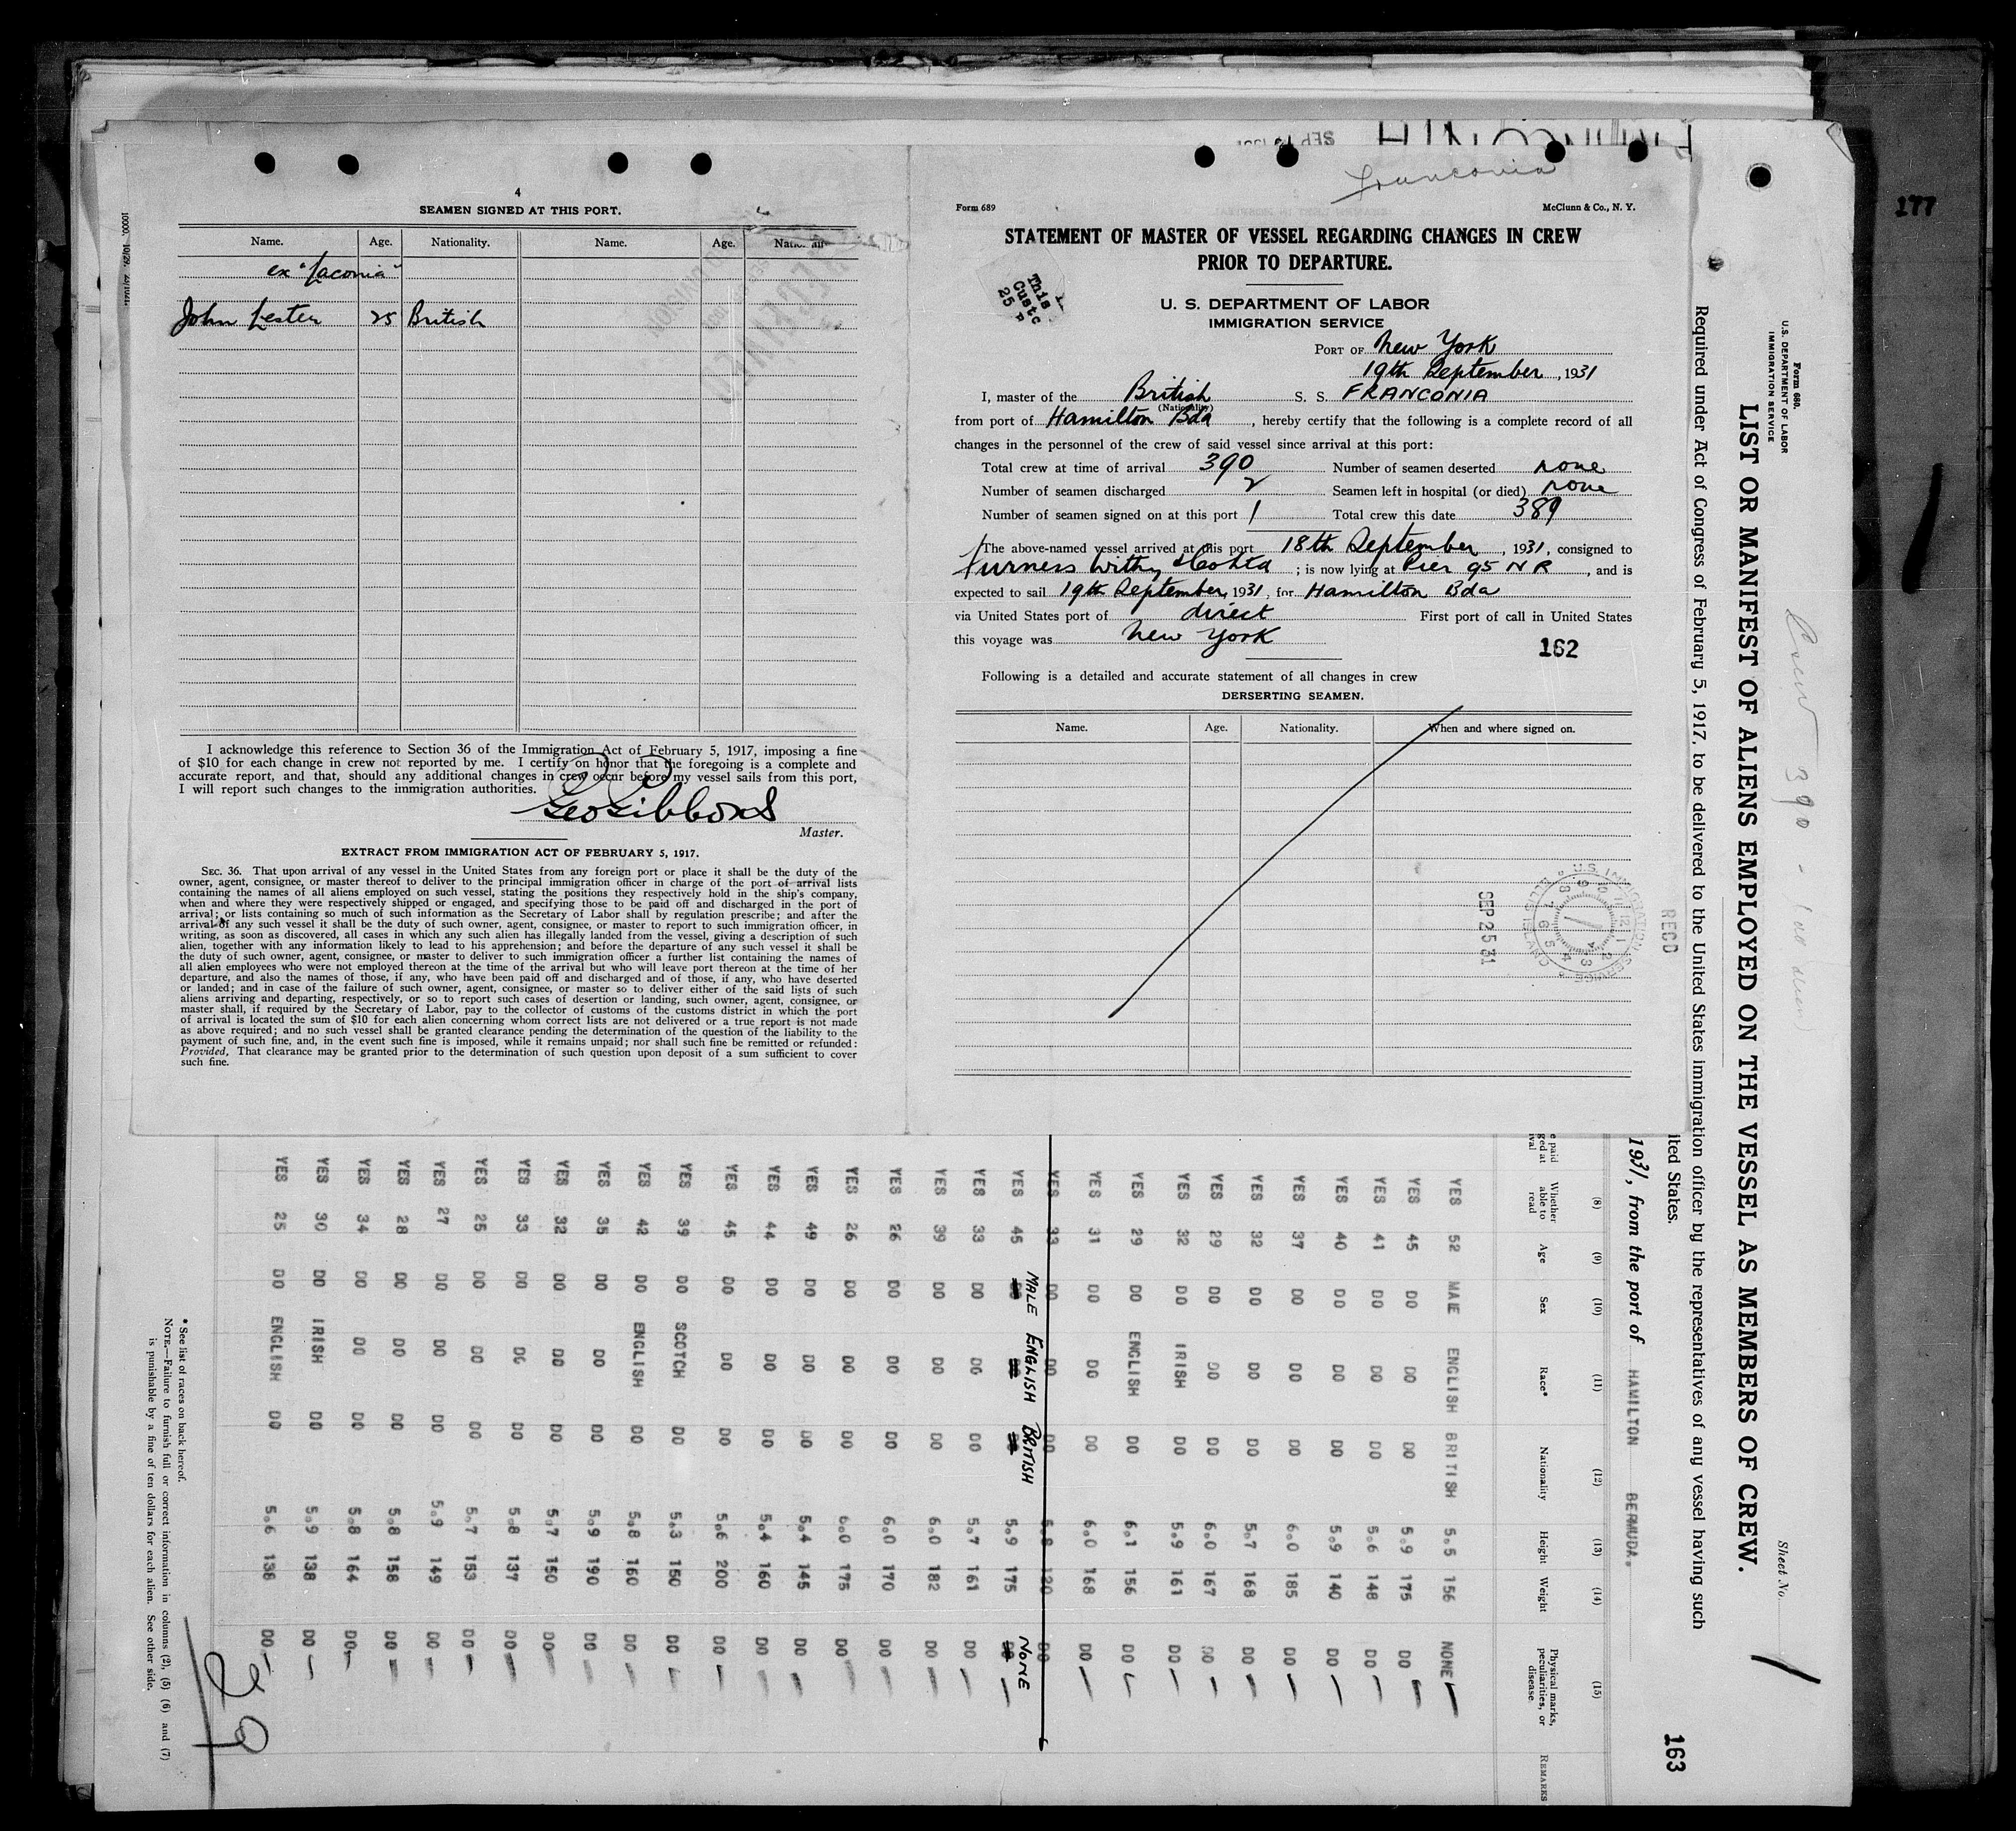 4
SEAMEN SIGNED AT THIS PORT.
Name. Age. Nationality. Name. Age.
ex "Laconia"
John Lester 25 British
I acknowledge this reference to Section 36 of the Immigration Act of February 5, 1917, imposing a fine
of $10 for each change in crew not reported by me. I certify on honor that the foregoing is a complete and
accurate report, and that, should any additional changes in crew occur before my vessel sails from this port,
I will report such changes to the immigration authorities.
Geo Gibbons
Master.
EXTRACT FROM IMMIGRATION ACT OF FEBRUARY 5, 1917.
SEC. 36. That upon arrival of any vessel in the United States from any foreign port or place it shall be the duty of the
owner, agent, consignee, or master thereof to deliver to the principal immigration officer in charge of the port of arrival lists
containing the names of all aliens employed on such vessel, stating the positions they respectively hold in the ship's company,
when and where they were respectively shipped or engaged, and specifying those to be paid off and discharged in the port of
arrival; or lists containing so much of such information as the Secretary of Labor shall by regulation prescribe; and after the
arrival of any such vessel it shall be the duty of such owner, agent, consignee, or master to report to such immigration officer, in
writing, as soon as discovered, all cases in which any such alien has illegally landed from the vessel, giving a description of such
alien, together with any information likely to lead to his apprehension; and before the departure of any such vessel it shall be
the duty of such owner, agent, consignee, or master to deliver to such immigration officer a further list containing the names of
all alien employees who were not employed thereon at the time of the arrival but who will leave port thereon at the time of her
departure, and also the names of those, if any, who have been paid off and discharged and of those, if any, who have deserted
or landed; and in case of the failure of such owner, agent, consignee, or master so to deliver either of the said lists of such
aliens arriving and departing, respectively, or so to report such cases of desertion or landing, such owner, agent, consignee, or
master shall, if required by the Secretary of Labor, pay to the collector of customs of the customs district in which the port
of arrival is located the sum of $10 for each alien concerning whom correct lists are not delivered or a true report is not made
as above required; and no such vessel shall be granted clearance pending the determination of the question of the liability to the
payment of such fine, and, in the event such fine is imposed, while it remains unpaid; nor shall such fine be remitted or refunded:
Provided, That clearance may be granted prior to the determination of such question upon deposit of a sum sufficient to cover
such fine.
Franconia
Form 689 McClunn & Co., N. Y.
STATEMENT OF MASTER OF VESSEL REGARDING CHANGES IN CREW
PRIOR TO DEPARTURE.
U. S. DEPARTMENT OF LABOR
IMMIGRATION SERVICE
PORT OF New York
19th September, 1931
I, master of the British S. S. FRANCONIA
(Nationality)
from port of Hamilton Bda, hereby certify that the following is a complete record of all
changes in the personnel of the crew of said vessel since arrival at this port:
Total crew at time of arrival 390 Number of seamen deserted none
Number of seamen discharged 2 Seamen left in hospital (or died) none
Number of seamen signed on at this port 1 Total crew this date 389
The above-named vessel arrived at this port 18th September, 1931, consigned to
Furness Withy & Co Ltd; is now lying at Pier 95 N R, and is
expected to sail 19th September, 1931, for Hamilton Bda
via United States port of direct First port of call in United States
this voyage was New York
162
Following is a detailed and accurate statement of all changes in crew
DERSERTING SEAMEN.
Name. Age. Nationality. When and where signed on.
REC'D
SEP 25 31
U.S. IMMIGRATION SERVICE
177
Form 680.
U.S. DEPARTMENT OF LABOR
IMMIGRATION SERVICE
Sheet No. 1
Crew 390
LIST OR MANIFEST OF ALIENS EMPLOYED ON THE VESSEL AS MEMBERS OF CREW.
Required under Act of Congress of February 5, 1917, to be delivered to the United States immigration officer by the representatives of any vessel having such
ited States.
163
1931, from the port of HAMILTON BERMUDA.
(8) (9) (10) (11) (12) (13) (14) (15)
Whether able to read Age Sex Race* Nationality Height Weight Physical marks, peculiarities, or disease REMARKS
YES 52 MALE ENGLISH BRITISH 5.5 156 NONE
YES 45 DO DO DO 5.9 175 DO
YES 41 DO DO DO 5.6 148 DO
YES 40 DO DO DO 5.9 140 DO
YES 37 DO DO DO 6.0 185 DO
YES 32 DO DO DO 5.7 168 DO
YES 29 DO DO DO 6.0 167 DO
YES 32 DO IRISH DO 5.9 161 DO
YES 29 DO ENGLISH DO 6.1 156 DO
YES 31 DO DO DO 6.0 168 DO
YES 33 DO DO DO 5.8 120 DO
YES 45 MALE ENGLISH BRITISH 5.9 175 NONE
YES 33 DO DO DO 5.7 161 DO
YES 39 DO DO DO 6.0 182 DO
YES 26 DO DO DO 6.0 170 DO
YES 26 DO DO DO 6.0 175 DO
YES 49 DO DO DO 5.4 145 DO
YES 44 DO DO DO 5.4 160 DO
YES 45 DO DO DO 5.6 200 DO
YES 39 DO SCOTCH DO 5.3 150 DO
YES 42 DO ENGLISH DO 5.8 160 DO
YES 35 DO DO DO 5.9 190 DO
YES 32 DO DO DO 5.7 150 DO
YES 33 DO DO DO 5.8 137 DO
YES 25 DO DO DO 5.7 153 DO
YES 27 DO DO DO 5.9 149 DO
YES 28 DO DO DO 5.8 158 DO
YES 34 DO DO DO 5.8 164 DO
YES 30 DO IRISH DO 5.9 138 DO
YES 25 DO ENGLISH DO 5.6 138 DO
* See list of races on back hereof.
NOTE.—Failure to furnish full or correct information in columns (2), (5) (6) and (7)
is punishable by a fine of ten dollars for each alien. See other side.
29